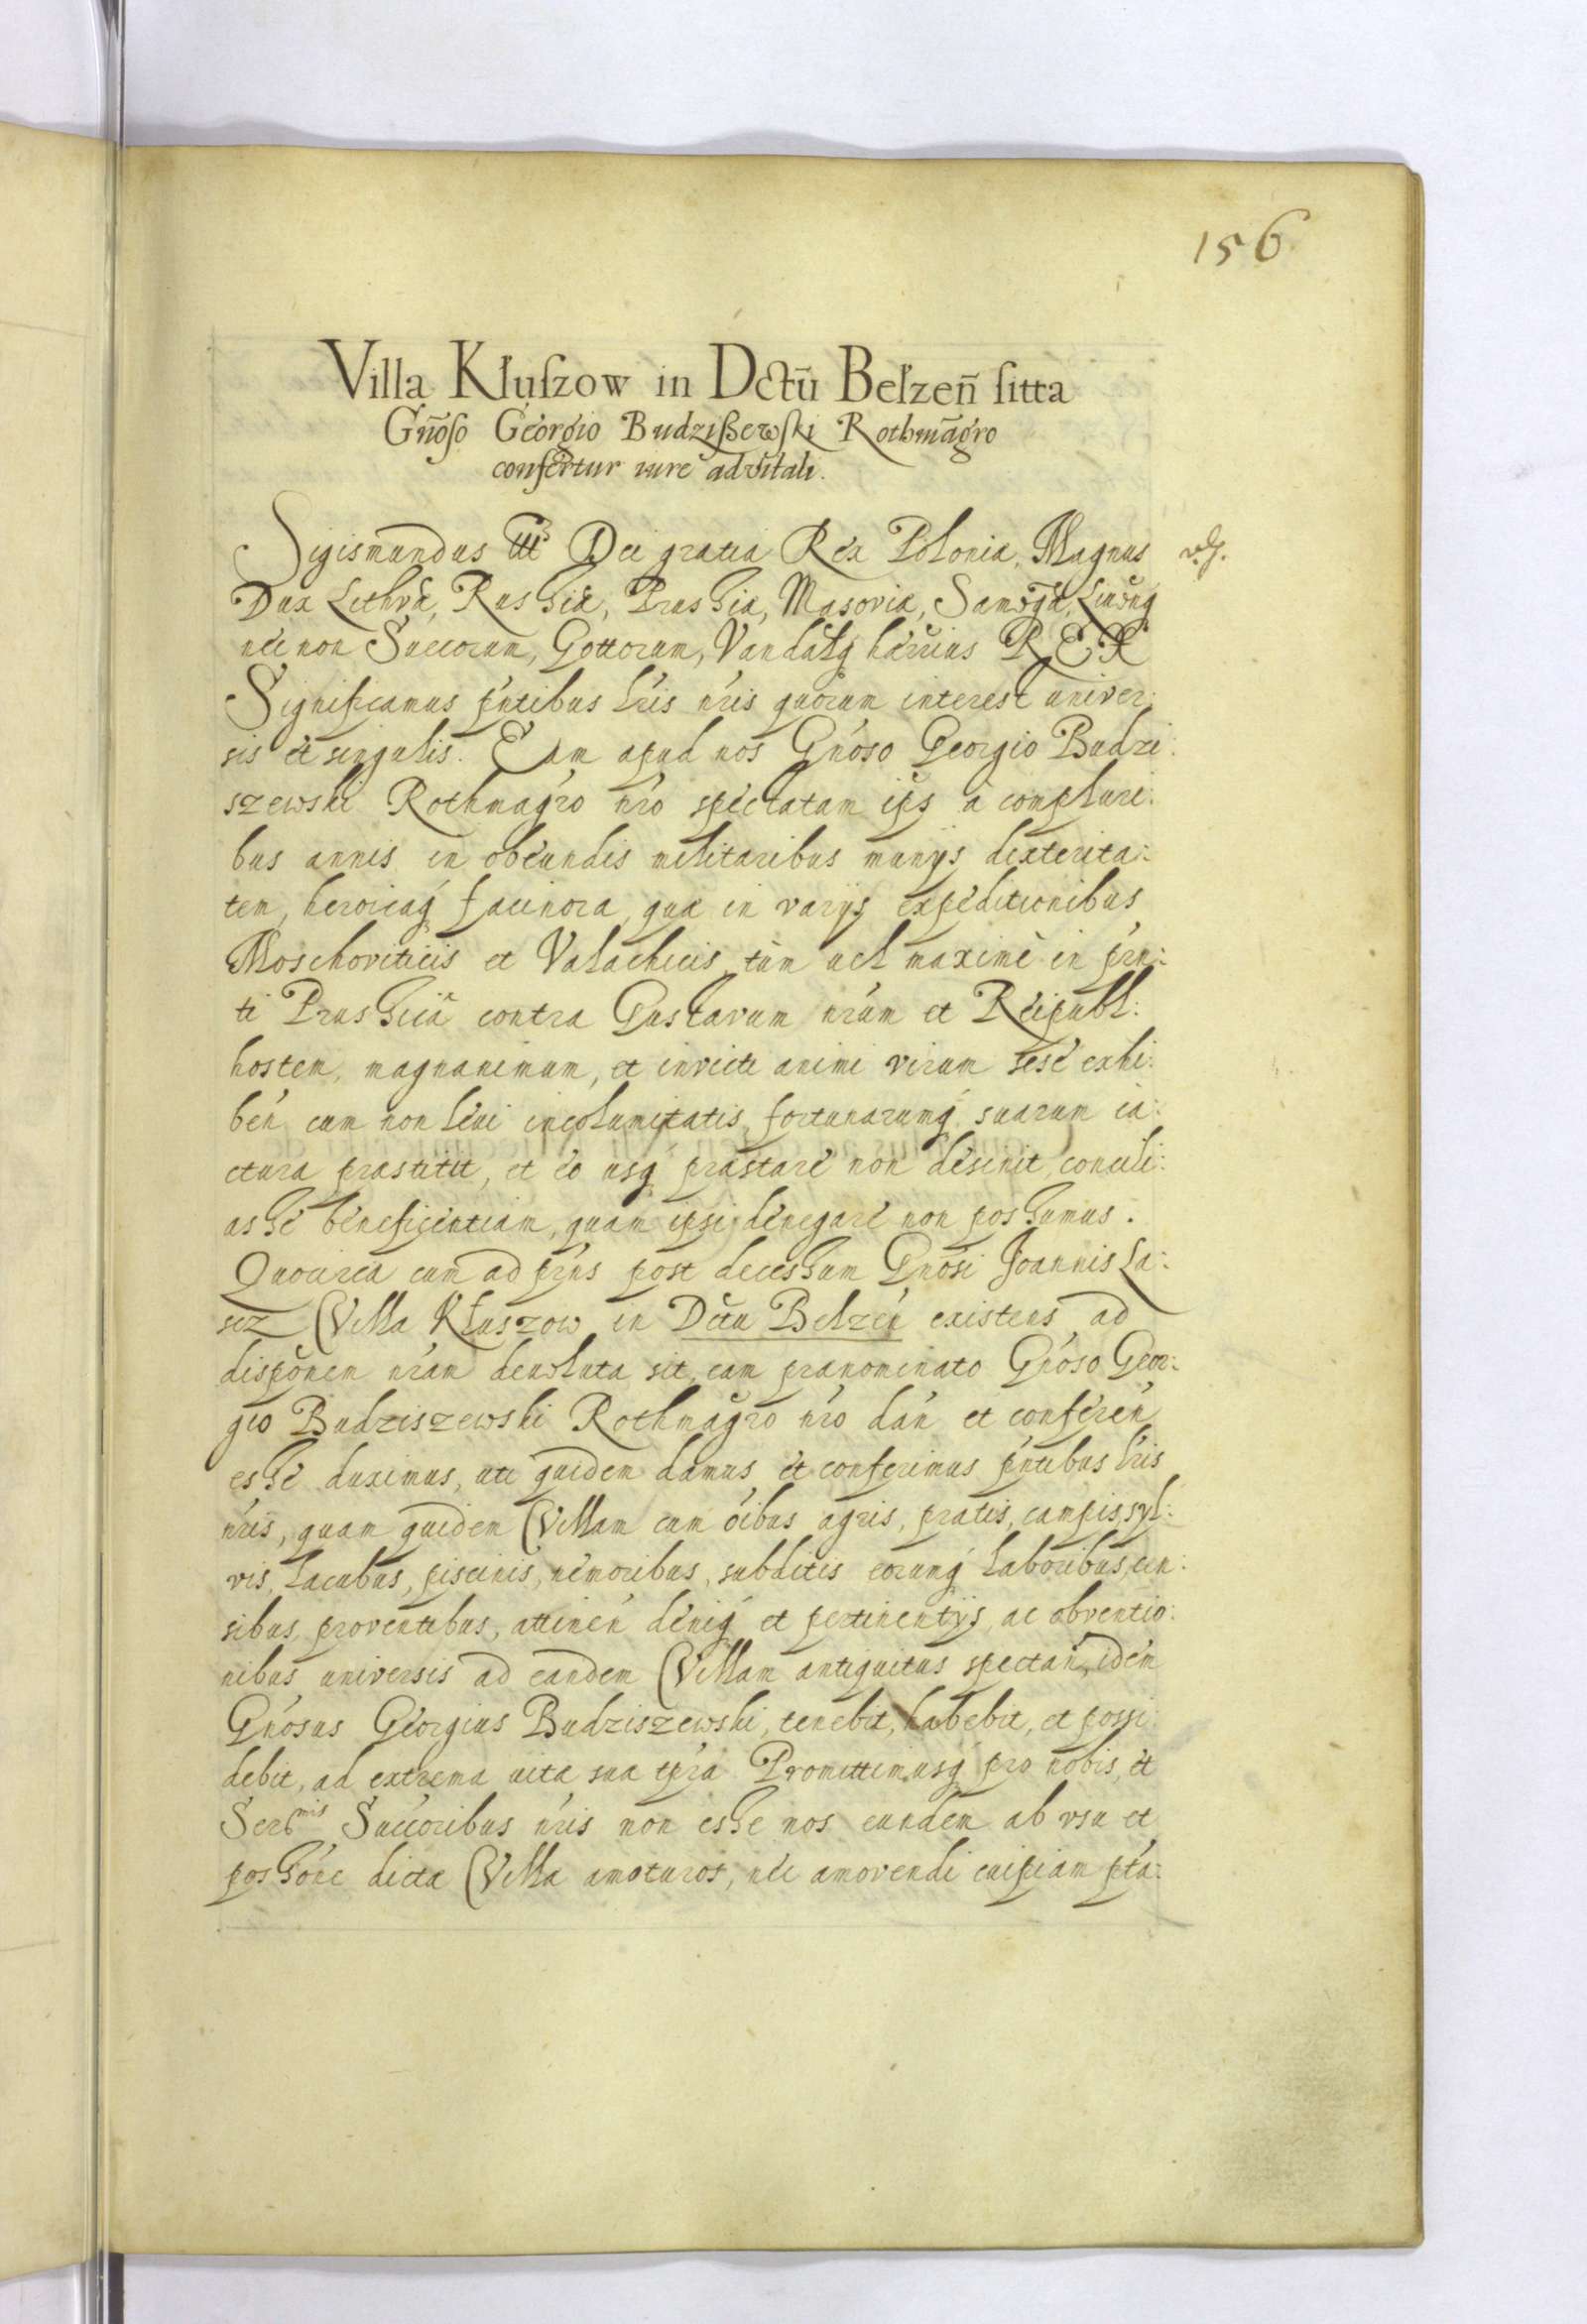 156
Villa Kłuszow in Dctũ Bełzeñ sitta
Gñoso Georgio Budzißewski Rothmãgro
confertur iure advitali.
Sigismundus III Dei gratia Rex Poloniæ, Magnus
Dux Lithvæ, Russiæ, Prussiæ, Masoviæ, Samogæ, Livonq
nec non Sueccorum, Gottorum, Vandalq hærrius REX
Significamus pntibus lris nris quorum interest univer:
sis et singulis. Eam apud nos Gnoso Georgio Budzi:
szewski Rothmagro nro spectatam ips a compluri:
bus annis in obeundis militaribus munijs dexterita:
tem, heroicaq facinora, quæ in varijs expeditionibus
Moschoviticis et Valachicis, tùm vel maximè in prn:
ti Prussica contra Gustavum nrum et Reipubl:
hostem, magnanimum, et invicti animi virum sese exhi:
ben cum non levi incolumitatis, fortunarumq suarum ia:
ctura præstitit, et eo usq præstare non desinit, concili:
asse beneficentiam, quam ipsi denegare non possumus.
Quocirca cum ad prns post decessum Gnosi Joannis La:
scz Villa Kłuszow in Dctu Belzen existens ad
disponem nram devoluta sit, eam prænominato Gnoso Geor:
gio Budziszewski Rothmagro nro dan et conferen
esse duximus, uti quidem damus et conferimus pntibus lris
nris, quam quidem Villam cum oibus agris, pratis, campis, syl:
vis, lacubus, piscinis, nemoribus, subditis eorumq laboribus, cen:
sibus, proventibus, attinen deniq et pertinentijs, ac obventio:
nibus universis ad eandem Villam antiquitus spectan, idem
Gnosus Georgius Budziszewski, tenebit, habebit, et possi:
debit, ad extrema vitæ suæ tpra. Promittimusq pro nobis, et
Ser[mis] Succoribus nris non esse nos eundem ab usu et
possone dictæ Villæ amoturos, nec amovendi cuipiam pta: